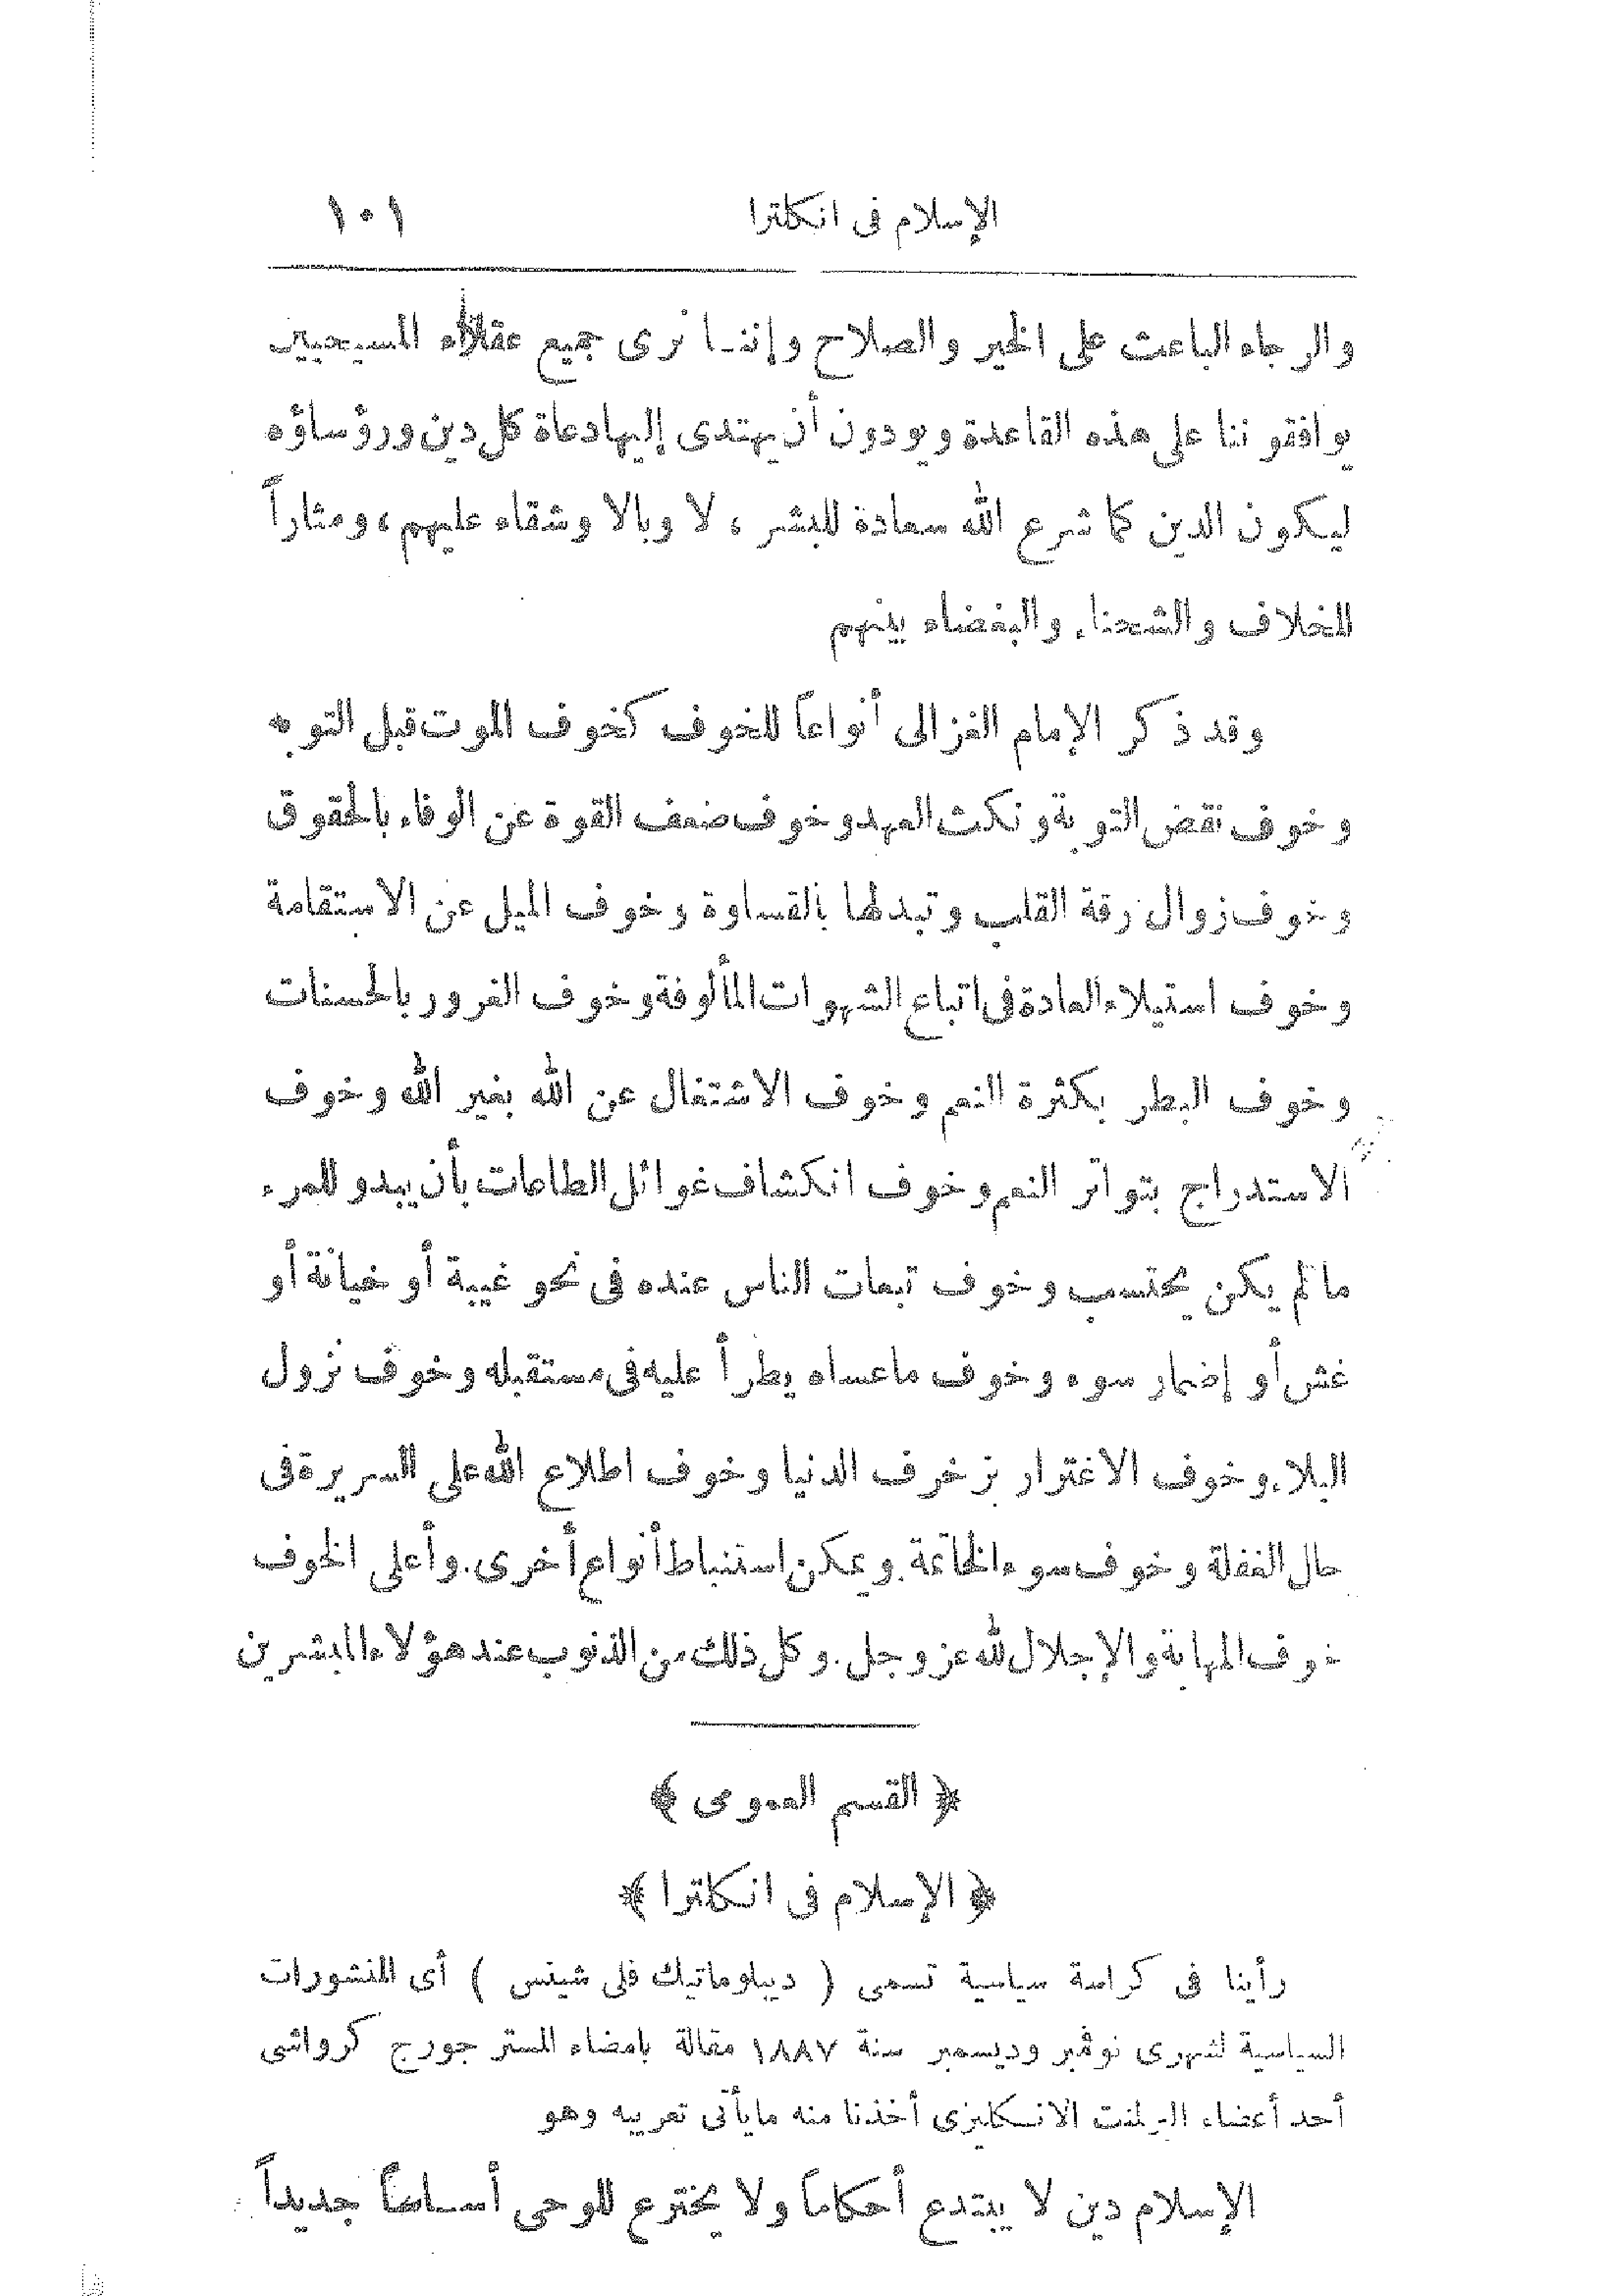 الإسلام فى انكلترا ١٠١
والرجاء الباعث على الخير والصلاح وإننا نرى جميع عقلاء المسيحيين
يوافقوننا على هذه القاعدة ويودون أن يهتدى إليها دعاة كل دين ورؤساؤه
ليكون الدين كما شرع الله سعادة للبشر ، لا وبالا وشقاء عليهم ، ومثاراً
للخلاف والشحناء والبغضاء بينهم
وقد ذكر الإمام الغزالى أنواعاً للخوف كخوف الموت قبل التوبة
وخوف نقض التوبة ونكث العهد وخوف ضعف القوة عن الوفاء بالحقوق
وخوف زوال رقة القلب وتبدلها بالقساوة وخوف الميل عن الاستقامة
وخوف استيلاء العادة فى اتباع الشهوات المألوفة وخوف الغرور بالحسنات
وخوف البطر بكثرة النعم وخوف الاشتغال عن الله بغير الله وخوف
الاستدراج بتواتر النعم وخوف انكشاف غوائل الطاعات بأن يبدو للمرء
مالم يكن يحتسب وخوف تبعات الناس عنده فى نحو غيبة أو خيانة أو
غش أو إضمار سوء وخوف ماعساه يطرأ عليه فى مستقبله وخوف نزول
البلاء وخوف الاغترار بزخرف الدنيا وخوف اطلاع الله على السريرة فى
حال الغفلة وخوف سوء الخاتمة. ويمكن استنباط أنواع أخرى. وأعلى الخوف
خوف المهابة والإجلال لله عز وجل. وكل ذلك من الذنوب عند هؤلاء المبشرين
﴿ القسم العمومى ﴾
﴿ الإسلام فى انكلترا ﴾
رأينا فى كراسة سياسية تسمى ( ديبلوماتيك فلى شيتس ) أى المنشورات
السياسية لشهرى نوڤمبر وديسمبر سنة ١٨٨٧ مقالة بامضاء المستر جورج كرواشى
أحد أعضاء البرلمنت الانكليزى أخذنا منه مايأتى تعريبه وهو
الإسلام دين لا يبتدع أحكاماً ولا يخترع للوحى أساساً جديداً